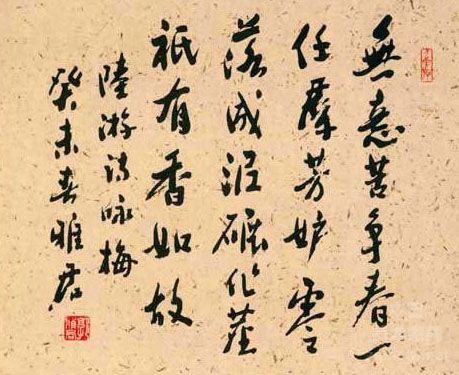 無意苦争春一
任羣芳妒零
落成泥碾作塵
祇有香如故
陸游詩咏梅
癸未春雅君